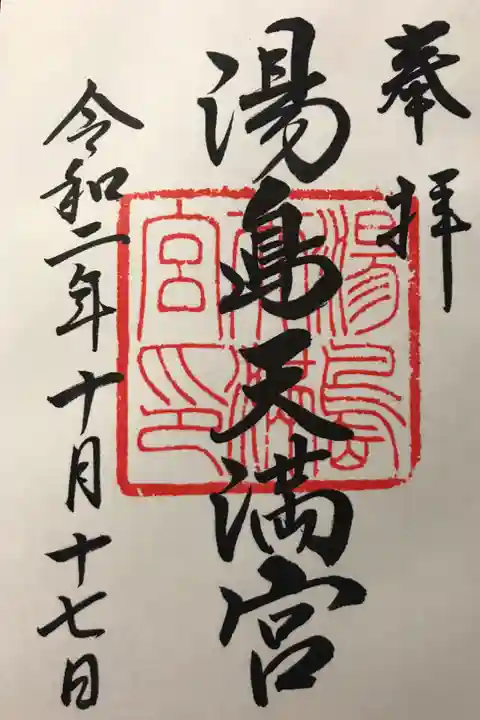 奉拝
湯島天満宮
令和二年十月十七日
湯島
天満
宮印